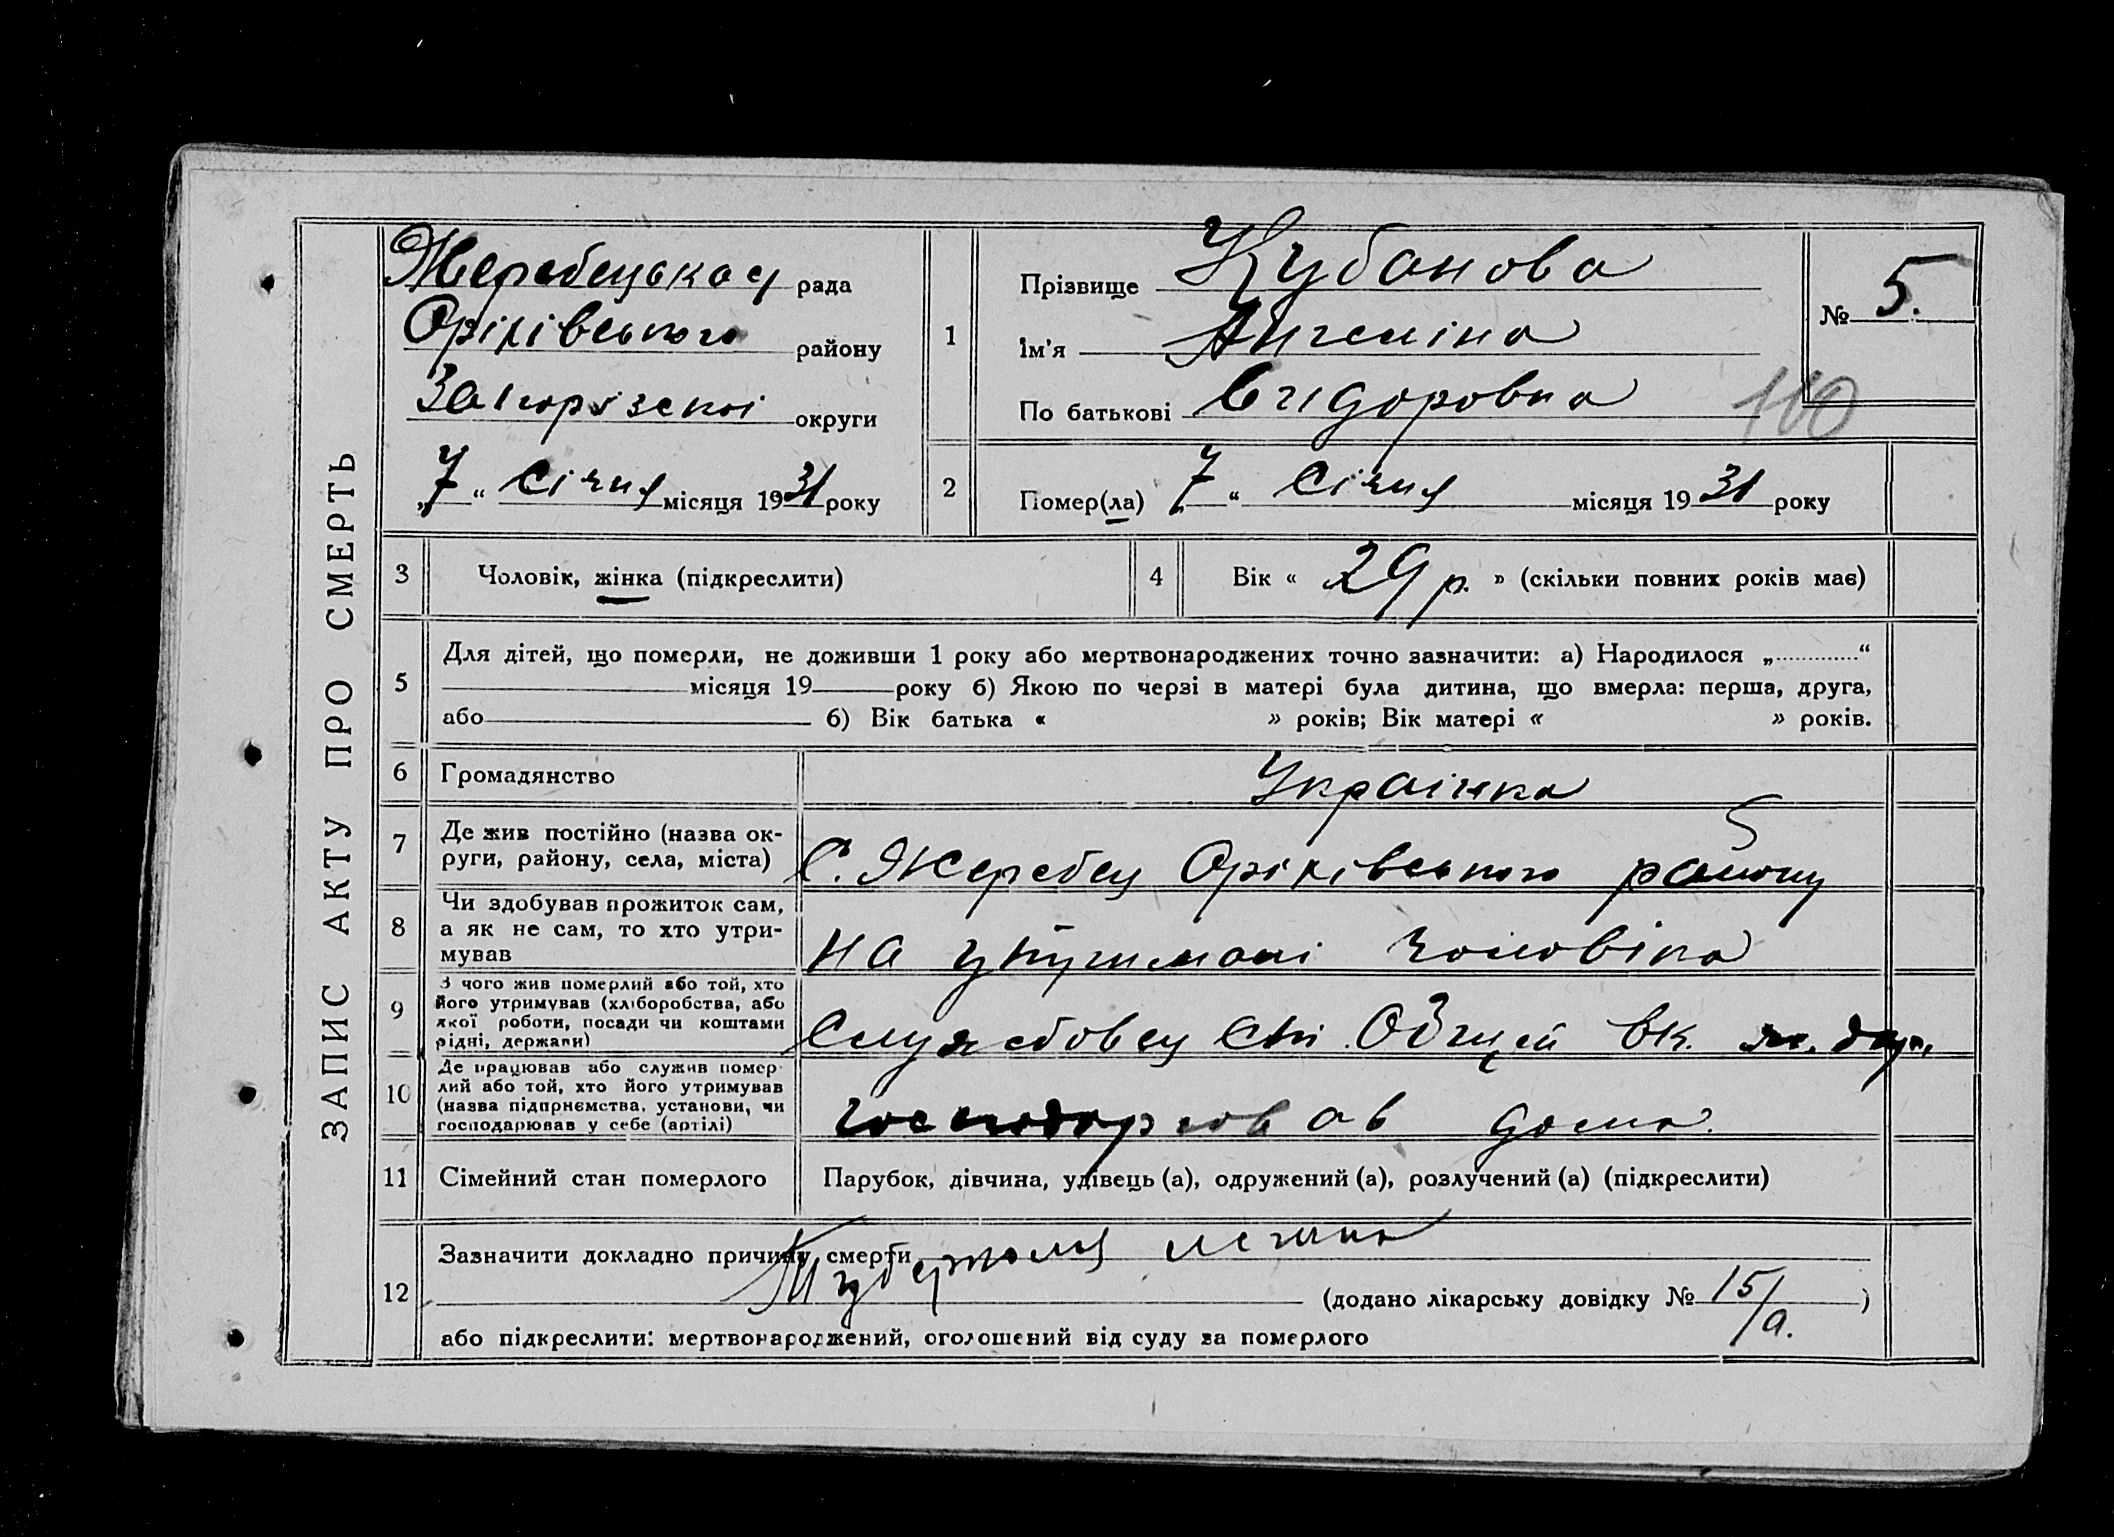 ЗАПИС АКТУ ПРО СМЕРТЬ
Жеребецькая рада
Оріхівського району
Запорізскої округи
„7“ Січня місяця 1931 року
1
Прізвище Кубанова
Ім'я Ангеліна
По батькові Сидоровна
№ 5.
110
2
Помер(ла) „7“ Січня місяця 1931 року
3 Чоловік, жінка (підкреслити)
4 Вік « 29 р. » (скільки повних років має)
5
Для дітей, що померли, не доживши 1 року або мертвонароджених точно зазначити: а) Народилося „ “
місяця 19 року б) Якою по черзі в матері була дитина, що вмерла: перша, друга,
або б) Вік батька « » років; Вік матері « » років.
6 Громадянство Українка
7 Де жив постійно (назва ок-
руги, району, села, міста) С. Жеребец Оріхівського району
8 Чи здобував прожиток сам,
а як не сам, то хто утри-
мував На утримані Чоловіка
9 З чого жив померлий або той, хто
його утримував (хліборобства, або
якої роботи, посади чи коштами
рідні, держави) Служебовец
10 Де працював або служив помер-
лий або той, хто його утримував
(назва підприємства, установи, чи
господарював у себе (артілі) господарював дома.
11 Сімейний стан померлого Парубок, дівчина, удівець (а), одружений (а), розлучений (а) (підкреслити)
12 Зазначити докладно причину смерти
(додано лікарську довідку № 15/а. )
або підкреслити: мертвонароджений, оголошений від суду за померлого